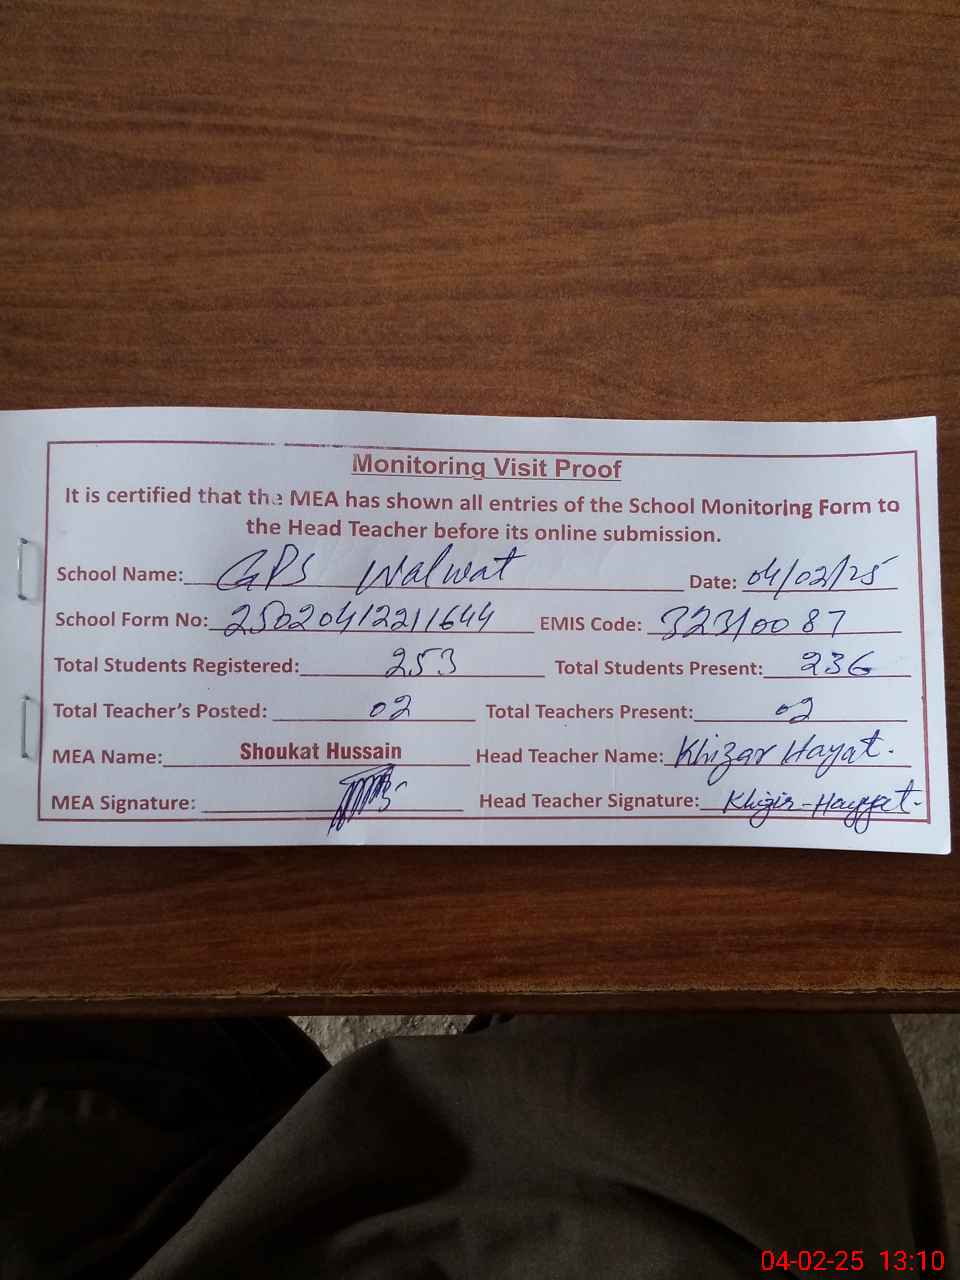 Monitoring Visit Proof
It is certified that the MEA has shown all entries of the School Monitoring Form to
the Head Teacher before its online submission.
School Name: GPS Walwat Date: 04/02/25
School Form No: 25020412211644 EMIS Code: 32310087
Total Students Registered: 253 Total Students Present: 236
Total Teacher's Posted: 02 Total Teachers Present: 02
MEA Name: Shoukat Hussain Head Teacher Name: Khizar Hayat.
MEA Signature: Head Teacher Signature: Khizir-Hayyat.
04-02-25 13:10